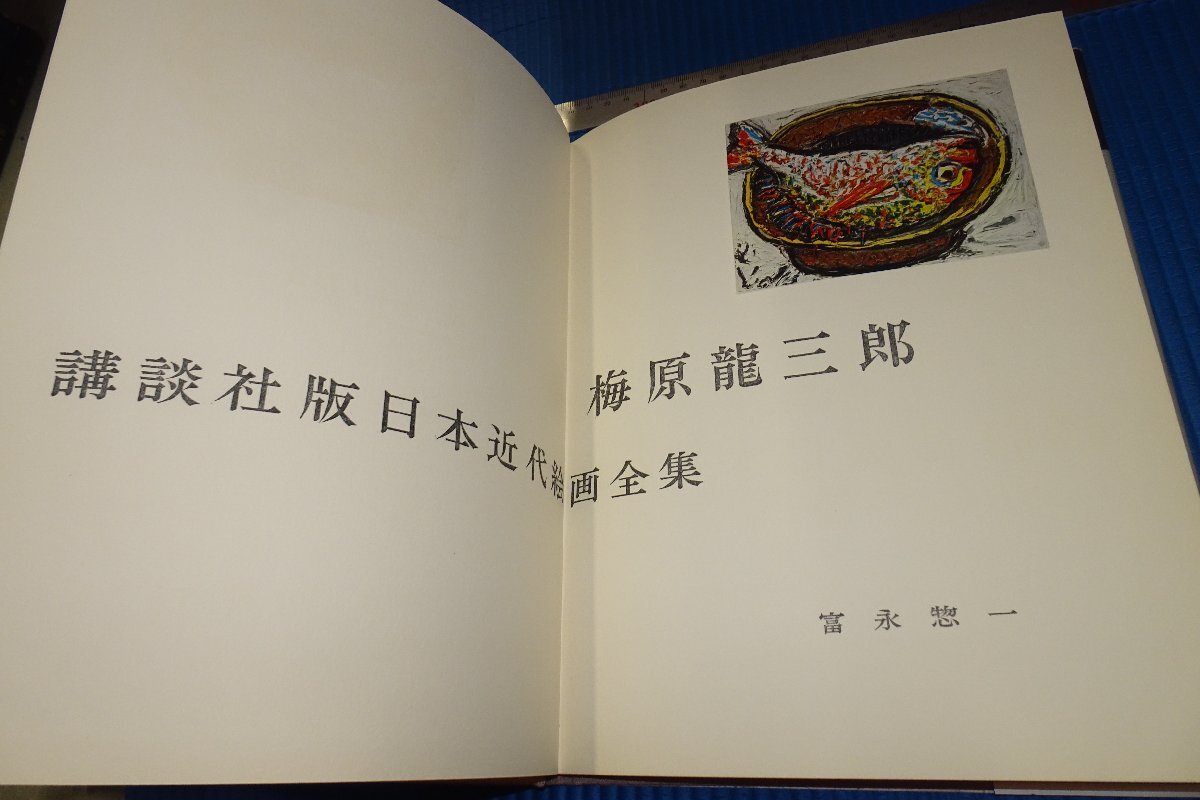 梅原龍三郎
講談社版日本近代絵画全集
富永惣一